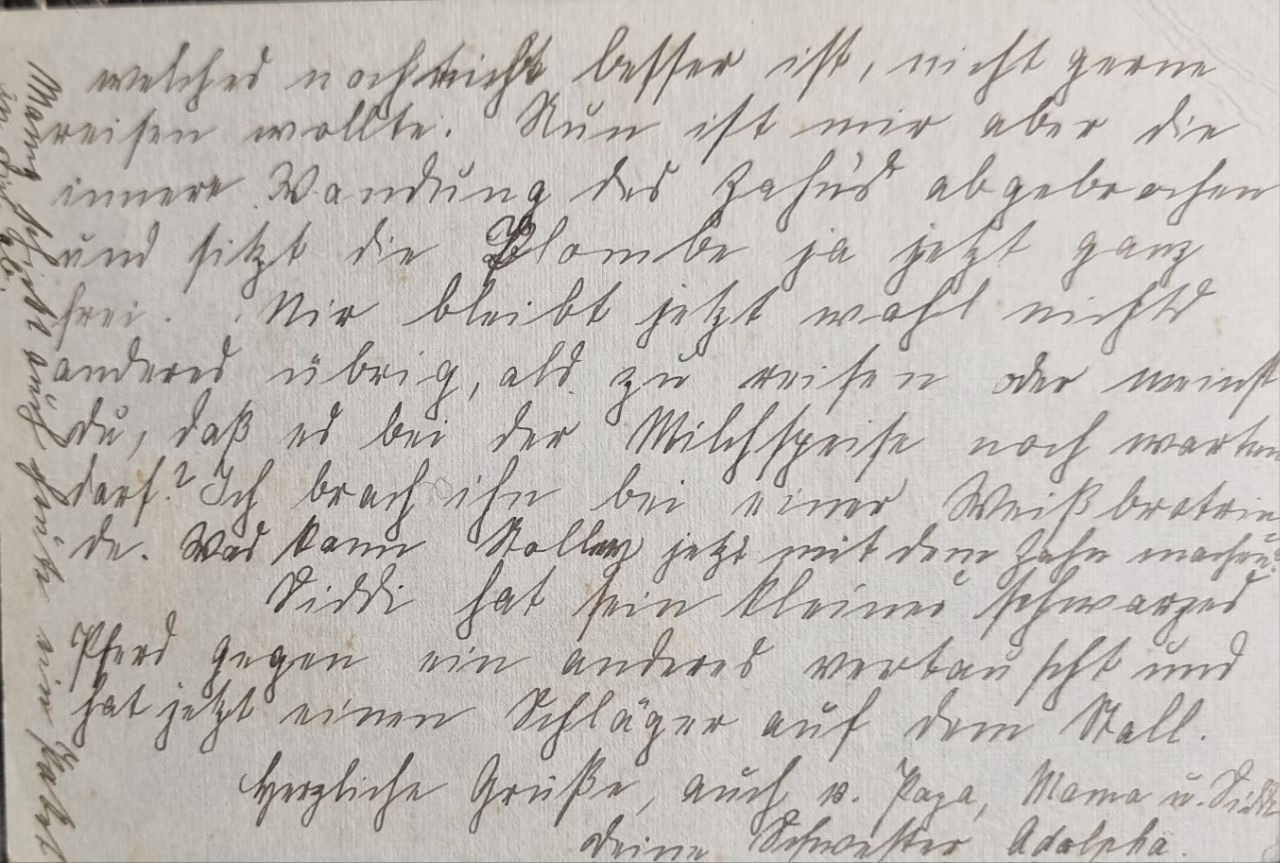 welches noch nicht besser ist, nicht gerne
reisen wollte. Nun ist mir aber die
innere Wandung des Zahn's abgebrochen
und sitzt die Plombe ja jetzt ganz
frei. Mir bleibt jetzt wohl nichts
anderes übrig, als zu reisen oder meinst
du, daß es bei der Milchspeise noch warten
darf? Ich brach ihn bei einer Weißbrotrin
de. Was kann jetzt mit dem Zahn machen?
Siddi hat sein kleines schwarzes
Pferd gegen ein anderes vertauscht und
hat jetzt einen Schläger auf dem Stall.
Herzliche Grüße, auch v. Papa, Mama u. Siddi
deine Schwester Adolpha.
Mama schickt auch heute ein Paket